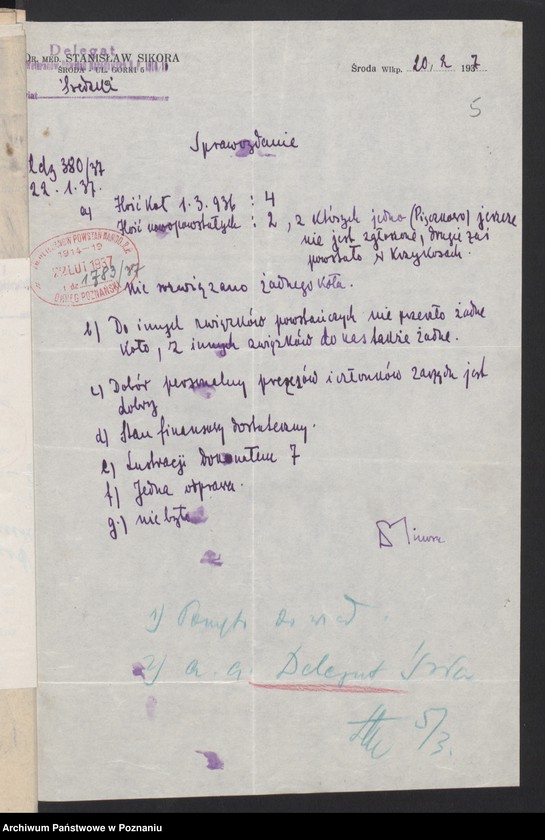 Delegat
DR. MED. STANISŁAW SIKORA
ŚRODA - UL. GÓRKI 6
Środa Wlkp. 20/2 1937
5
Sprawozdanie
Ldz 380/37
22.1.37.
a) Ilość Kół 1.3.936 : 4
Ilość nowopowstałych : 2, z których jedno (Pięczkowo) jeszcze
nie jest zgłoszone, drugie zaś
powstało w Krzykosach.
POWSTAŃ NAROD. R.P.
1914-19
LUT 1937
L.dz. 1783/37
OKRĘG POZNAŃSKI
Nie rozwiązano żadnego koła.
b) Do innych związków powstańczych nie przeszło żadne
koło, z innych związków do nas także żadne.
c) Dobór personalny prezesów i członków zarządu jest
dobry
d) Stan finansowy dostateczny.
e) Lustracji dokonałem 7
f) Jedna odprawa.
g.) nie było
1)
2) a. a. Delegat Środa
5/3.
Archiwum Państwowe w Poznaniu